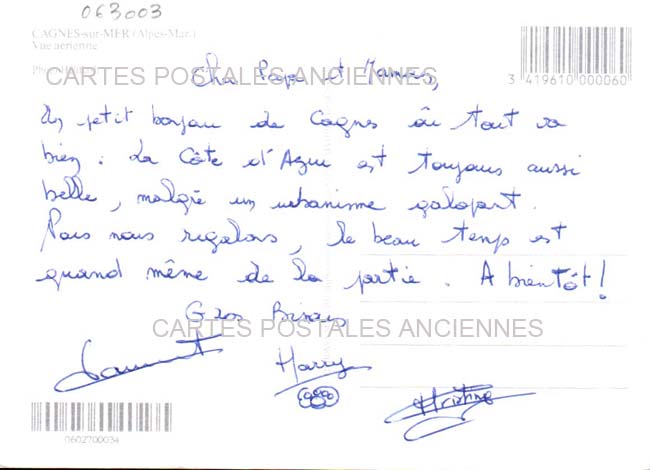 063003
CAGNES-sur-MER (Alpes-Mar.)
Vue aérienne
CARTES POSTALES ANCIENNES
Cher Papa et Maman,
3 419610 000060
Un petit bonjour de Cagnes où tout va
bien. La Côte d'Azur est toujours aussi
belle, malgré un urbanisme galopart.
Nous nous régalons, le beau temps est
quand même de la partie. A bientôt!
Gros Bisous
CARTES POSTALES ANCIENNES
Laurent
Harry
Christine
0602700034